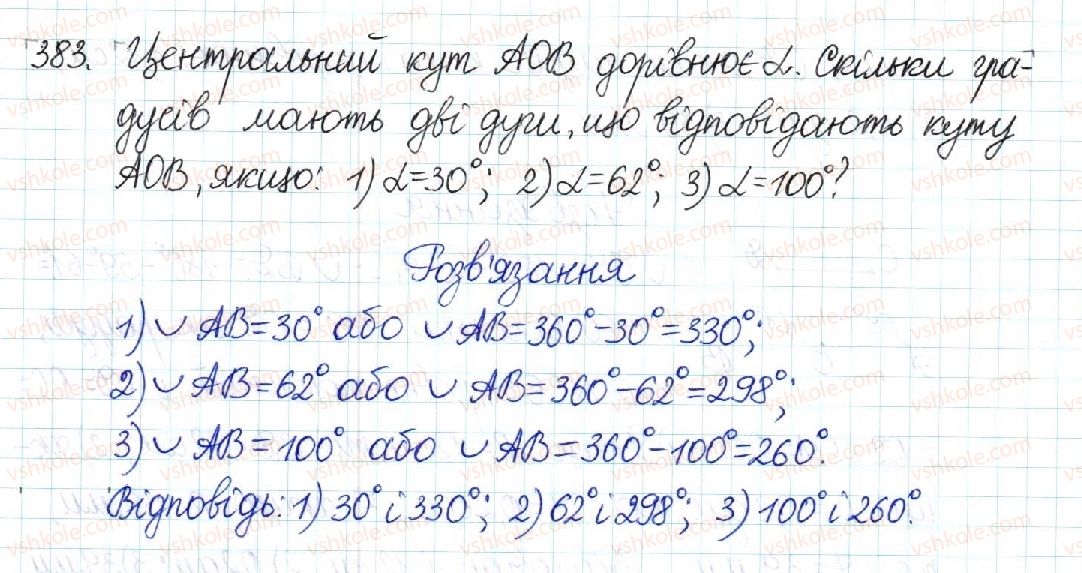 383. Центральний кут АОВ дорівнює α. Скільки гра-
дусів мають дві дуги, що відповідають куту
АОВ, якщо: 1) α=30°; 2) α=62°; 3) α=100°?
Розв'язання
1) ∪ АВ=30° або ∪ АВ=360°-30°=330°;
2) ∪ АВ=62° або ∪ АВ=360°-62°=298°;
3) ∪ АВ=100° або ∪ АВ=360°-100°=260°.
Відповідь: 1) 30° і 330°; 2) 62° і 298°; 3) 100° і 260°.